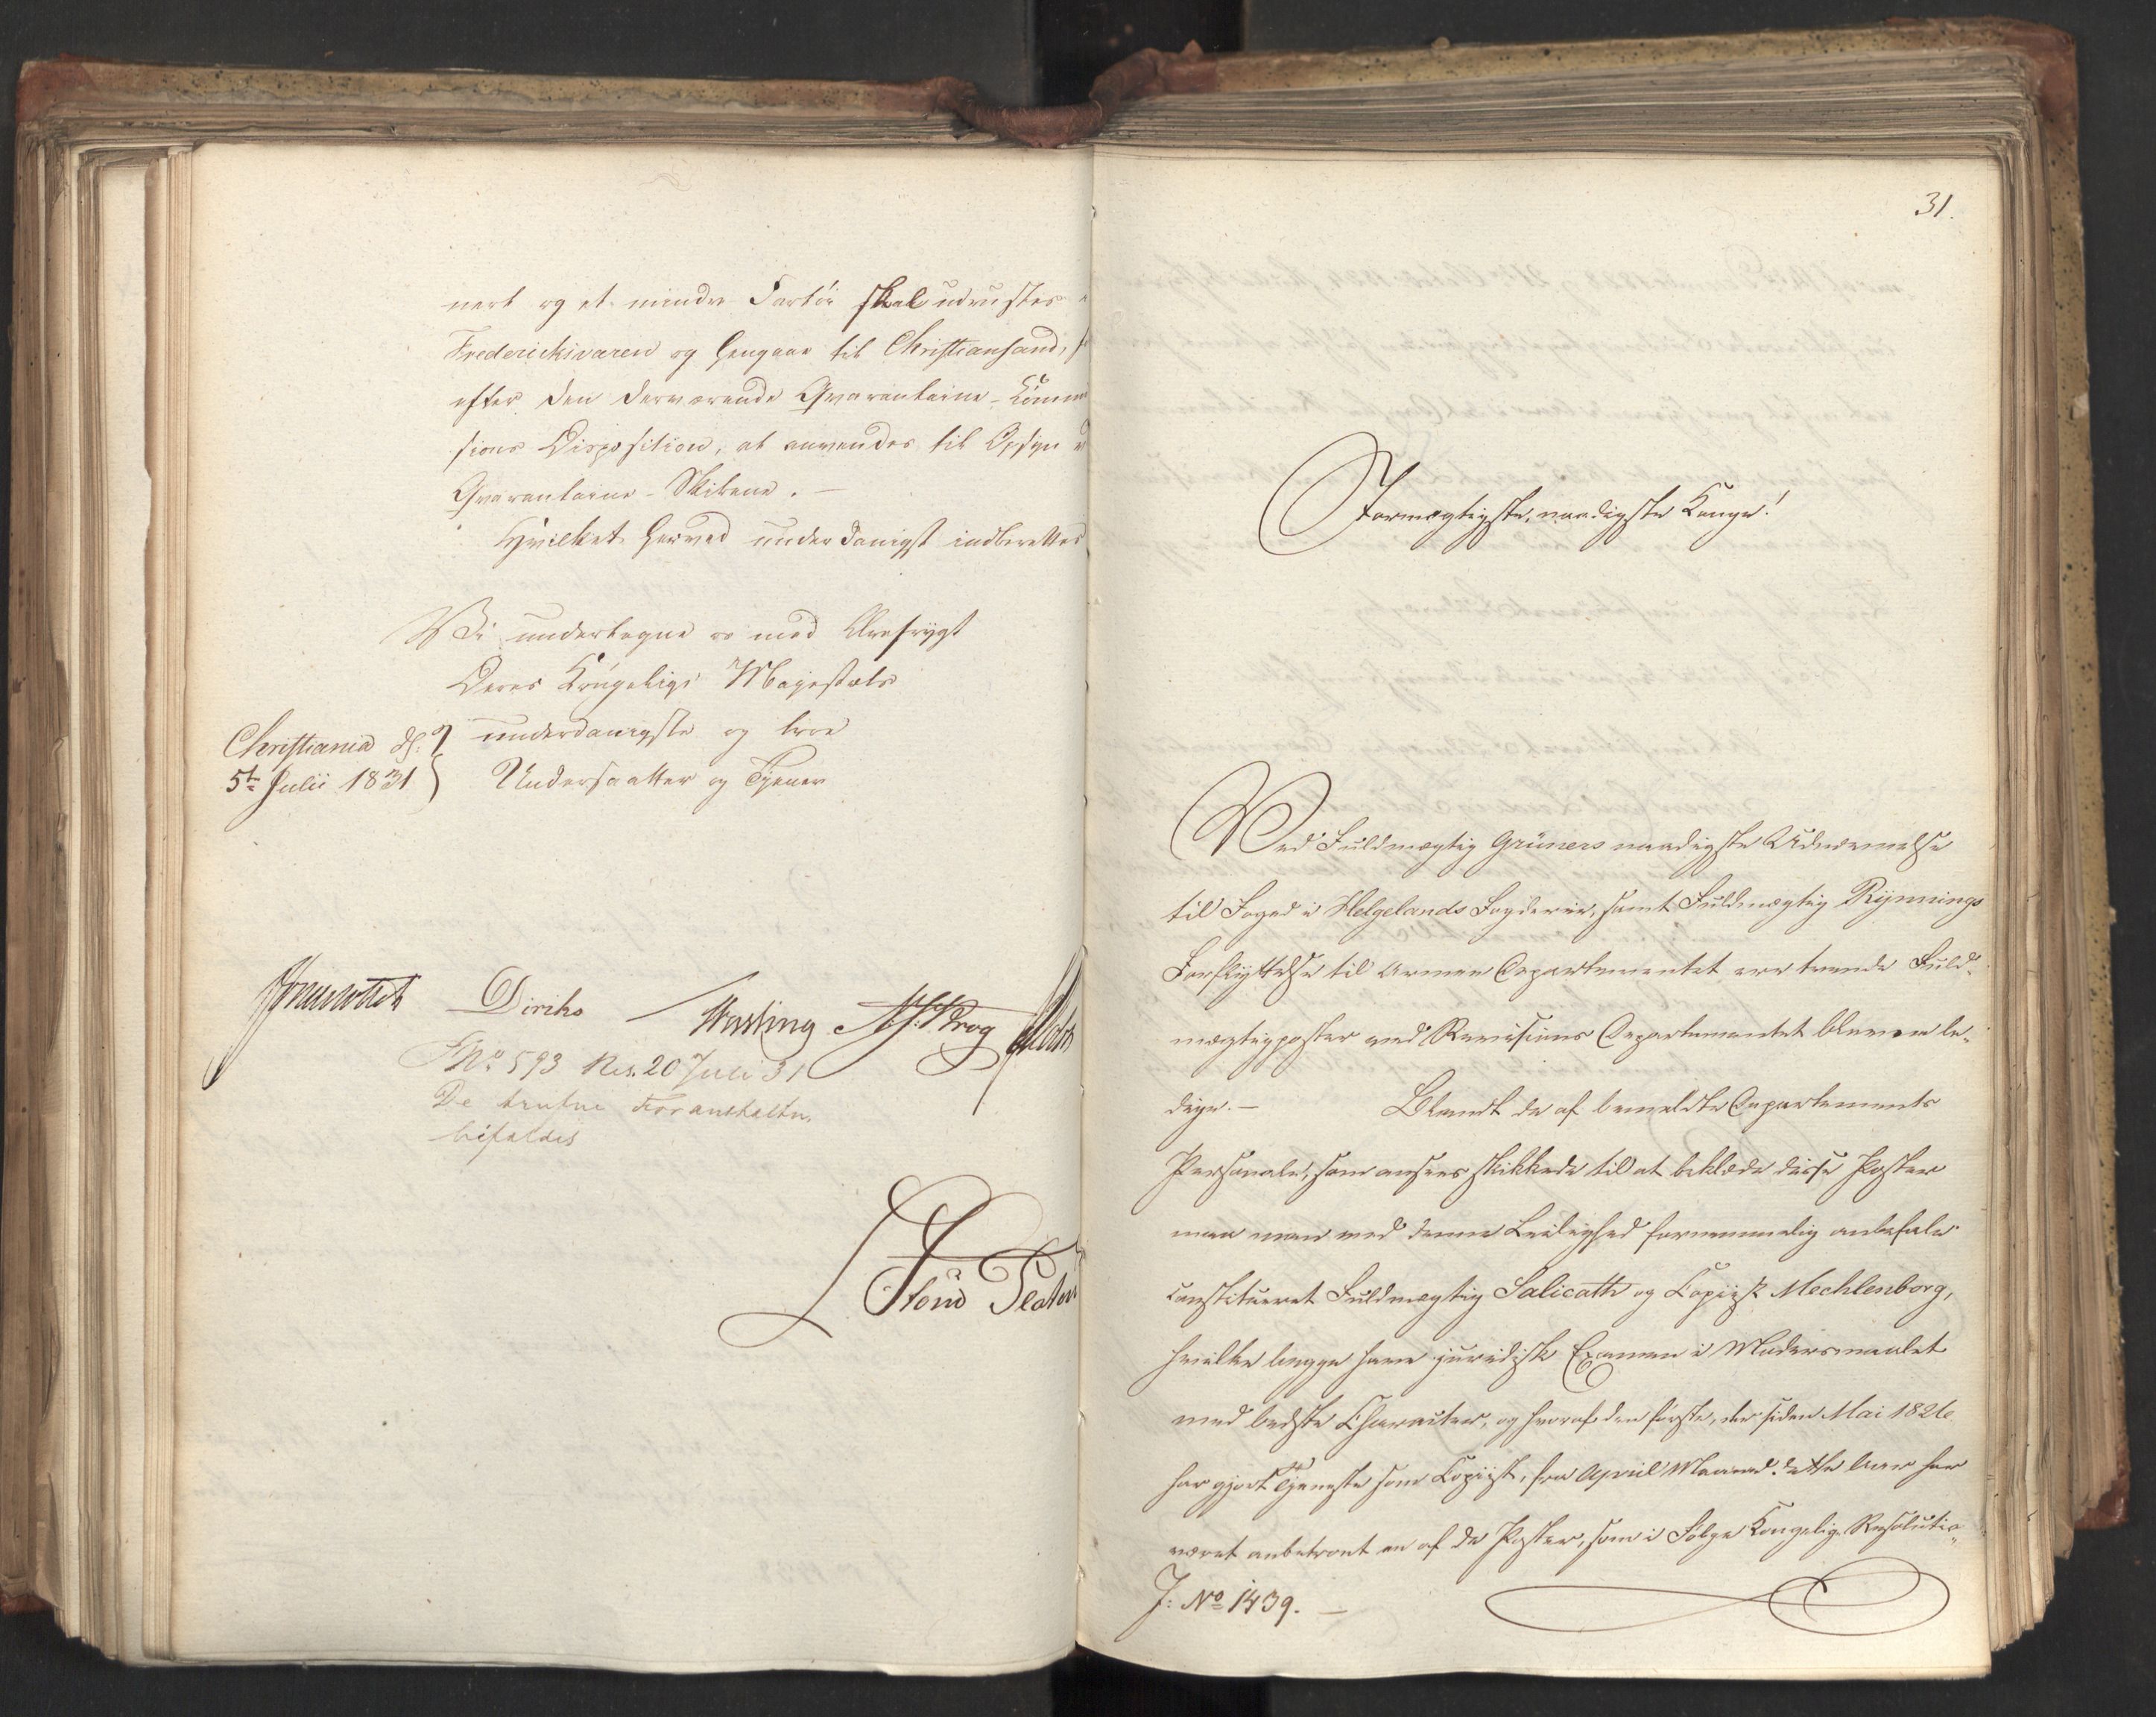 nert og et mindre Fartöi skal udrustes
Frederiksværn og hengaae til Christiansand, 
efter den derværende Qvarantaine-Commis
sions Disposition, at anvendes til Opsyn
Qvarantaine-Skibene. —
Hvilket herved underdanigst indberettes
Vi undertegne os med Ærefrygt
Deres Kongelige Majestæts
Christiania d: underdanigste og troe
5te Julii 1831 Undersaatter og Tjener
Diriks M. Krog
No 593 Res. 20 Juli 31
De trufne Foranstaltn.
bifaldes
31.
Stormægtigste, naadigste Konge!
Ved Fuldmægtig Grüners naadigste Udnævnelse
til Foged i Helgelands Fogderie, samt Fuldmægtig Rynnings
Forflyttelse til Armee Departementet ere tvende Fuld-
mægtigposter ved Revisions Departementet blevene le-
dige. — Blandt de af bemeldte Departements
Personale, som ansees skikkede til at beklæde disse Poster
maa man ved denne Leilighed fornemmelig anbefale
constitueret Fuldmægtig Salicath og Copiist Mechlenborg,
hvilke begge have juridisk Examen i Modersmaalet
med bedste Character, og hvoraf den første, der siden Mai 1826
har gjort Tjeneste som Copiist, fra April Maaned dette Aar har
været anbetroet en af de Poster, som i Følge Kongelig Resolutio-
J: No 1439. —